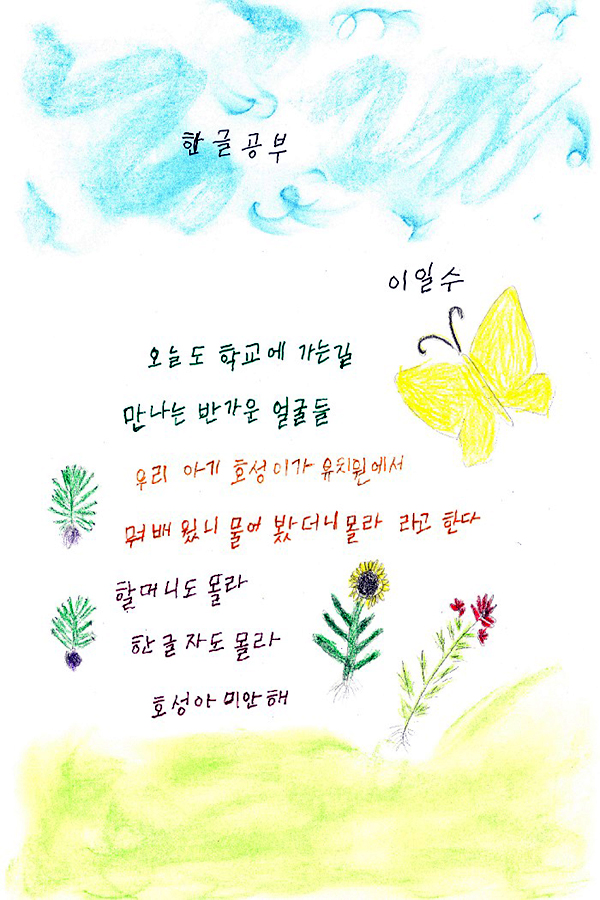 한글공부
이일수
오늘도 학교에 가는길
만나는 반가운 얼굴들
우리 아기 호성이가 유치원에서
뭐배 웠니 물어 봤더니 몰라 라고 한다
할머니도 몰라
한글자도 몰라
호성아 미안해